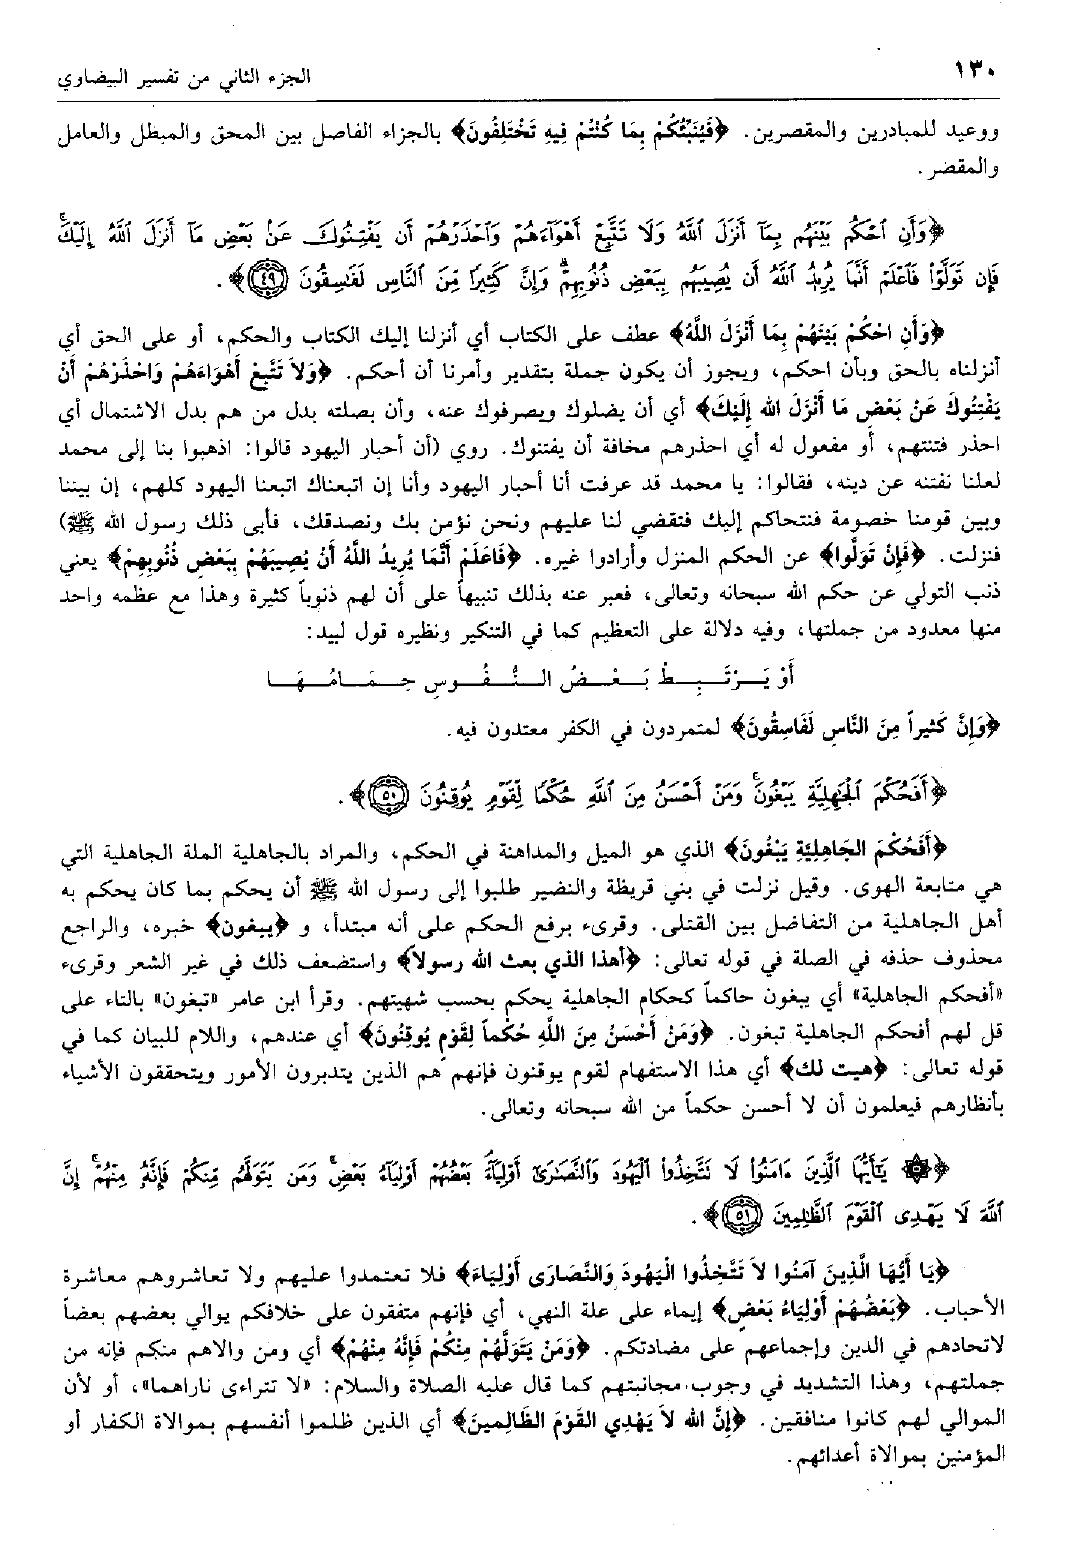 ١٣٠
الجزء الثاني من تفسير البيضاوي
ووعيد للمبادرين والمقصرين. ﴿فَيُنَبِّئُكُمْ بِمَا كُنْتُمْ فِيهِ تَخْتَلِفُونَ﴾ بالجزاء الفاصل بين المحق والمبطل والعامل
والمقصر.
﴿وَأَنِ ٱحْكُم بَيْنَهُم بِمَآ أَنزَلَ ٱللَّهُ وَلَا تَتَّبِعْ أَهْوَآءَهُمْ وَٱحْذَرْهُمْ أَن يَفْتِنُوكَ عَنۢ بَعْضِ مَآ أَنزَلَ ٱللَّهُ إِلَيْكَ ۖ
فَإِن تَوَلَّوْا۟ فَٱعْلَمْ أَنَّمَا يُرِيدُ ٱللَّهُ أَن يُصِيبَهُم بِبَعْضِ ذُنُوبِهِمْ ۗ وَإِنَّ كَثِيرًا مِّنَ ٱلنَّاسِ لَفَـٰسِقُونَ ٤٩﴾.
﴿وَأَنِ احْكُمْ بَيْنَهُمْ بِمَا أَنْزَلَ اللَّهُ﴾ عطف على الكتاب أي أنزلنا إليك الكتاب والحكم، أو على الحق أي
أنزلناه بالحق وبأن احكم، ويجوز أن يكون جملة بتقدير وأمرنا أن أحكم. ﴿وَلاَ تَتَّبِعْ أَهْوَاءَهُمْ وَاحْذَرْهُمْ أَنْ
يَفْتِنُوكَ عَنْ بَعْضِ مَا أَنْزَلَ الله إِلَيْكَ﴾ أي أن يضلوك ويصرفوك عنه، وأن بصلته بدل من هم بدل الاشتمال أي
احذر فتنتهم، أو مفعول له أي احذرهم مخافة أن يفتنوك. روي (أن أحبار اليهود قالوا: اذهبوا بنا إلى محمد
لعلنا نفتنه عن دينه، فقالوا: يا محمد قد عرفت أنا أحبار اليهود وأنا إن اتبعناك اتبعنا اليهود كلهم، إن بيننا
وبين قومنا خصومة فنتحاكم إليك فتقضي لنا عليهم ونحن نؤمن بك ونصدقك، فأبى ذلك رسول الله ﷺ)
فنزلت. ﴿فَإِن تَوَلَّوا﴾ عن الحكم المنزل وأرادوا غيره. ﴿فَاعْلَمْ أَنَّمَا يُرِيدُ اللَّهُ أَنْ يُصِيبَهُمْ بِبَعْضِ ذُنُوبِهِمْ﴾ يعني
ذنب التولي عن حكم الله سبحانه وتعالى، فعبر عنه بذلك تنبيهاً على أن لهم ذنوباً كثيرة وهذا مع عظمه واحد
منها معدود من جملتها، وفيه دلالة على التعظيم كما في التنكير ونظيره قول لبيد:
أَوْ يَـرْتَـبِـطْ بَـعْـضُ الـنُّـفُـوسِ حِـمَـامُـهَـا
﴿وَإِنَّ كَثيراً مِنَ النَّاسِ لَفَاسِقُونَ﴾ لمتمردون في الكفر معتدون فيه.
﴿أَفَحُكْمَ ٱلْجَـٰهِلِيَّةِ يَبْغُونَ ۚ وَمَنْ أَحْسَنُ مِنَ ٱللَّهِ حُكْمًا لِّقَوْمٍ يُوقِنُونَ ٥٠﴾.
﴿أَفَحُكْمَ الجَاهِلِيَّةِ يَبْغُونَ﴾ الذي هو الميل والمداهنة في الحكم، والمراد بالجاهلية الملة الجاهلية التي
هي متابعة الهوى. وقيل نزلت في بني قريظة والنضير طلبوا إلى رسول الله ﷺ أن يحكم بما كان يحكم به
أهل الجاهلية من التفاضل بين القتلى. وقرىء برفع الحكم على أنه مبتدأ، و ﴿يبغون﴾ خبره، والراجع
محذوف حذفه في الصلة في قوله تعالى: ﴿أهذا الذي بعث الله رسولاً﴾ واستضعف ذلك في غير الشعر وقرىء
«أفحكم الجاهلية» أي يبغون حاكماً كحكام الجاهلية يحكم بحسب شهيتهم. وقرأ ابن عامر «تبغون» بالتاء على
قل لهم أفحكم الجاهلية تبغون. ﴿وَمَنْ أَحْسَنُ مِنَ اللَّهِ حُكْماً لِقَوْمٍ يُوقِنُونَ﴾ أي عندهم، واللام للبيان كما في
قوله تعالى: ﴿هيت لك﴾ أي هذا الاستفهام لقوم يوقنون فإنهم هم الذين يتدبرون الأمور ويتحققون الأشياء
بأنظارهم فيعلمون أن لا أحسن حكماً من الله سبحانه وتعالى.
﴿۞ يَـٰٓأَيُّهَا ٱلَّذِينَ ءَامَنُوا۟ لَا تَتَّخِذُوا۟ ٱلْيَهُودَ وَٱلنَّصَـٰرَىٰٓ أَوْلِيَآءَ ۘ بَعْضُهُمْ أَوْلِيَآءُ بَعْضٍ ۚ وَمَن يَتَوَلَّهُم مِّنكُمْ فَإِنَّهُۥ مِنْهُمْ ۗ إِنَّ
ٱللَّهَ لَا يَهْدِى ٱلْقَوْمَ ٱلظَّـٰلِمِينَ ٥١﴾.
﴿يَا أَيُّهَا الَّذِينَ آمَنُوا لاَ تَتَّخِذُوا الْيَهُودَ وَالنَّصَارَى أَوْلِيَاءَ﴾ فلا تعتمدوا عليهم ولا تعاشروهم معاشرة
الأحباب. ﴿بَعْضُهُمْ أَوْلِيَاءُ بَعْضٍ﴾ إيماء على علة النهي، أي فإنهم متفقون على خلافكم يوالي بعضهم بعضاً
لاتحادهم في الدين وإجماعهم على مضادتكم. ﴿وَمَنْ يَتَوَلَّهُمْ مِنْكُمْ فَإِنَّهُ مِنْهُمْ﴾ أي ومن والاهم منكم فإنه من
جملتهم، وهذا التشديد في وجوب مجانبتهم كما قال عليه الصلاة والسلام: «لا تتراءى ناراهما»، أو لأن
الموالي لهم كانوا منافقين. ﴿إِنَّ الله لاَ يَهْدِي القَوْمَ الظَالِمينَ﴾ أي الذين ظلموا أنفسهم بموالاة الكفار أو
المؤمنين بموالاة أعدائهم.